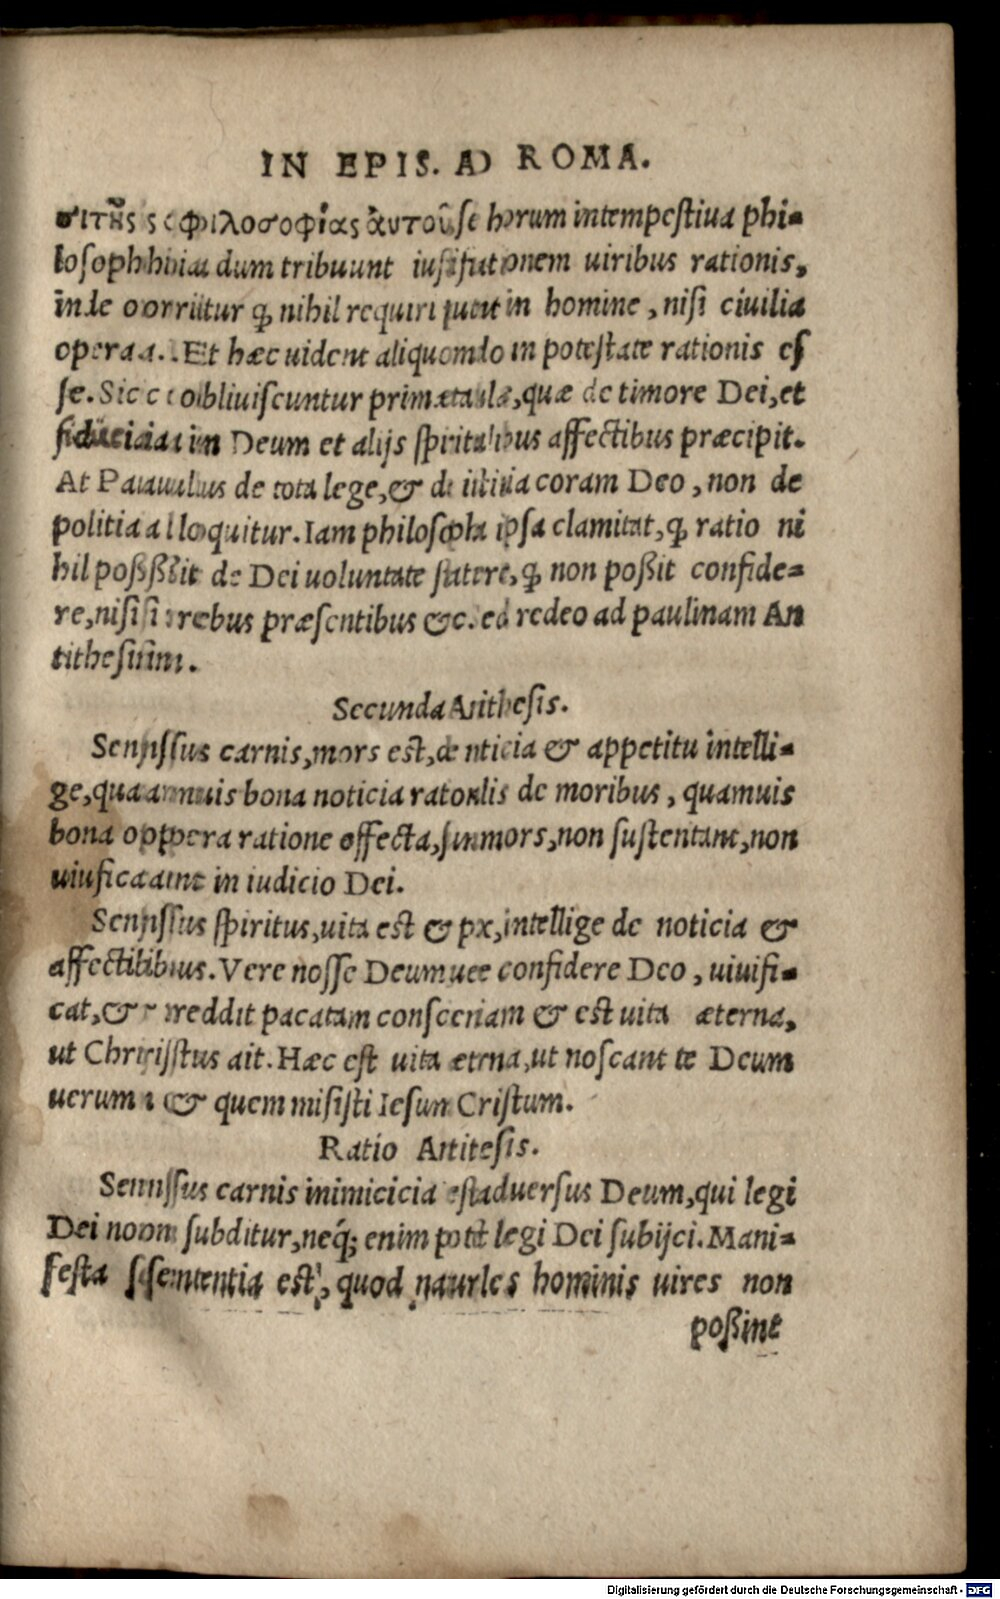 IN EPIS. AD ROMA.
φιλοσοφίας ἀυτοῦ se horum intempestiua phi-
losophia dum tribuunt iustitutionem uiribus rationis,
inde oritur ꝙ nihil requiri putent in homine, nisi ciuilia
opera. Et hæc uident aliquomdo in potestate rationis es
se. Sic obliuiscuntur primæ tabulæ, quæ de timore Dei, et
fiducia in Deum et alijs spiritalibus affectibus præcipit.
At Paulus de tota lege, & de iusticia coram Deo, non de
politia loquitur. Iam philosophia ipsa clamitat, ꝙ ratio ni
hil poßit de Dei uoluntate statuere, ꝙ non poßit confide-
re, nisi rebus præsentibus &c. Sed redeo ad paulinam An
tithesim.
Secunda Antithesis.
Sensus carnis, mors est, de noticia & appetitu intelli-
ge, quamuis bona noticia rationalis de moribus, quamuis
bona opera ratione effecta, sunt mors, non sustentant, non
uiuificant in iudicio Dei.
Sensus spiritus, uita est & pax, intellige de noticia &
affectibus. Vere nosse Deum uere confidere Deo, uiuifi-
cat, & reddit pacatam conscienciam & est uita æterna,
ut Christus ait. Hæc est uita æterna, ut noscant te Deum
uerum & quem misisti Iesum Cristum.
Ratio Antitesis.
Sensus carnis inimicicia est aduersus Deum, qui legi
Dei non subditur, neq; enim potest legi Dei subijci. Mani-
festa sententia est, quod naturales hominis uires non
poßint
Digitalisierung gefördert durch die Deutsche Forschungsgemeinschaft - DFG